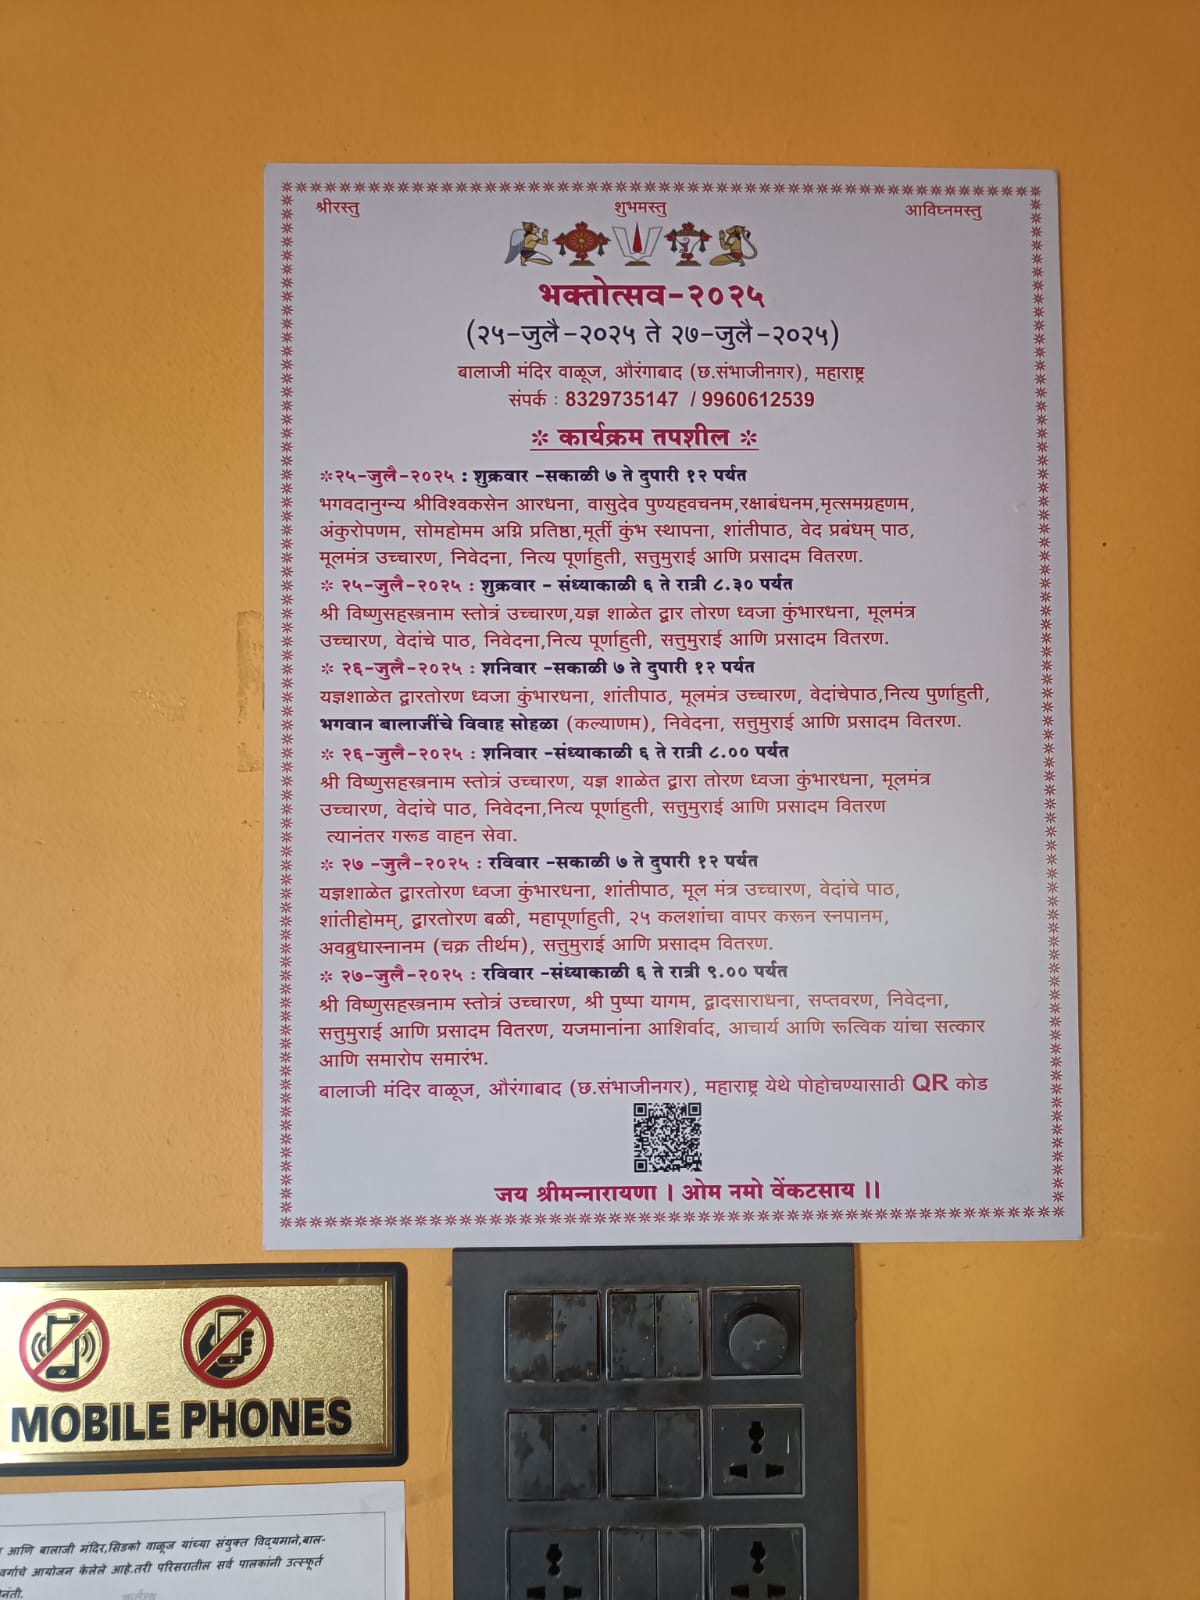 श्रीरस्तु शुभमस्तु आविघ्नमस्तु
भक्तोत्सव-२०२५
(२५-जुलै-२०२५ ते २७-जुलै-२०२५)
बालाजी मंदिर वाळूज, औरंगाबाद (छ.संभाजीनगर), महाराष्ट्र
संपर्क : 8329735147 / 9960612539
* कार्यक्रम तपशील *
*२५-जुलै-२०२५ : शुक्रवार -सकाळी ७ ते दुपारी १२ पर्यत
भगवदानुग्न्य श्रीविश्वकसेन आरधना, वासुदेव पुण्यहवचनम,रक्षाबंधनम,मृत्समग्रहणम,
अंकुरोपणम, सोमहोमम अग्नि प्रतिष्ठा,मूर्ती कुंभ स्थापना, शांतीपाठ, वेद प्रबंधम् पाठ,
मूलमंत्र उच्चारण, निवेदना, नित्य पूर्णाहुती, सत्तुमुराई आणि प्रसादम वितरण.
* २५-जुलै-२०२५ : शुक्रवार - संध्याकाळी ६ ते रात्री ८.३० पर्यत
श्री विष्णुसहस्त्रनाम स्तोत्रं उच्चारण,यज्ञ शाळेत द्वार तोरण ध्वजा कुंभारधना, मूलमंत्र
उच्चारण, वेदांचे पाठ, निवेदना,नित्य पूर्णाहुती, सत्तुमुराई आणि प्रसादम वितरण.
* २६-जुलै-२०२५ : शनिवार -सकाळी ७ ते दुपारी १२ पर्यत
यज्ञशाळेत द्वारतोरण ध्वजा कुंभारधना, शांतीपाठ, मूलमंत्र उच्चारण, वेदांचेपाठ,नित्य पुर्णाहुती,
भगवान बालाजींचे विवाह सोहळा (कल्याणम), निवेदना, सत्तुमुराई आणि प्रसादम वितरण.
* २६-जुलै-२०२५ : शनिवार -संध्याकाळी ६ ते रात्री ८.०० पर्यत
श्री विष्णुसहस्त्रनाम स्तोत्रं उच्चारण, यज्ञ शाळेत द्वारा तोरण ध्वजा कुंभारधना, मूलमंत्र
उच्चारण, वेदांचे पाठ, निवेदना,नित्य पूर्णाहुती, सत्तुमुराई आणि प्रसादम वितरण
त्यानंतर गरूड वाहन सेवा.
* २७ -जुलै-२०२५ : रविवार -सकाळी ७ ते दुपारी १२ पर्यत
यज्ञशाळेत द्वारतोरण ध्वजा कुंभारधना, शांतीपाठ, मूल मंत्र उच्चारण, वेदांचे पाठ,
शांतीहोमम्, द्वारतोरण बळी, महापूर्णाहुती, २५ कलशांचा वापर करून स्नपानम,
अवब्रुधास्नानम (चक्र तीर्थम), सत्तुमुराई आणि प्रसादम वितरण.
* २७-जुलै-२०२५ : रविवार -संध्याकाळी ६ ते रात्री ९.०० पर्यत
श्री विष्णुसहस्त्रनाम स्तोत्रं उच्चारण, श्री पुष्पा यागम, द्वादसाराधना, सप्तवरण, निवेदना,
सत्तुमुराई आणि प्रसादम वितरण, यजमानांना आशिर्वाद, आचार्य आणि रूत्विक यांचा सत्कार
आणि समारोप समारंभ.
बालाजी मंदिर वाळूज, औरंगाबाद (छ.संभाजीनगर), महाराष्ट्र येथे पोहोचण्यासाठी QR कोड
जय श्रीमन्नारायणा । ओम नमो वेंकटसाय ।।
MOBILE PHONES
आणि बालाजी मंदिर,सिडको वाळूज यांच्या संयुक्त विद्यमाने,बाल-
वर्गाचे आयोजन केलेले आहे.तरी परिसरातील सर्व पालकांनी उत्स्फूर्त